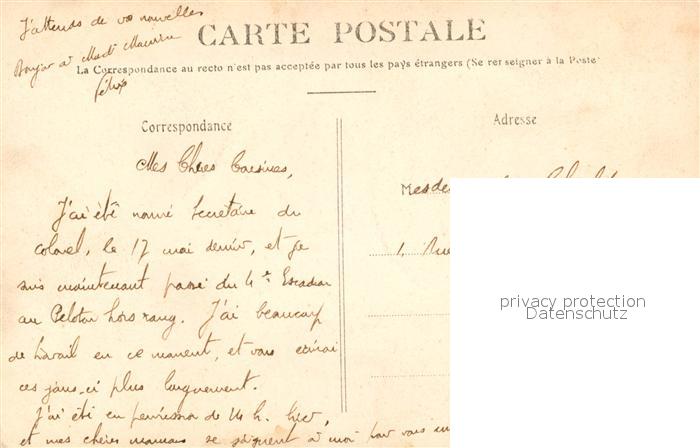 J'attends de vos nouvelles
Bonjour à Mad. Maurice
Félix
CARTE POSTALE
La Correspondance au recto n'est pas acceptée par tous les pays étrangers (Se renseigner à la Poste
Correspondance
Adresse
Mes Chères Cousines,
J'ai été nommé secrétaire du
colonel, le 17 mai dernier, et je
suis maintenant passé du 4e Escadron
au Peloton hors rang. J'ai beaucoup
de travail en ce moment, et vous écrirai
ces jours-ci plus longuement.
J'ai été en permission de 24 h. hier,
et mes chères mamans se joignent à moi pour vous
Mesde
1, Rue
privacy protection
Datenschutz